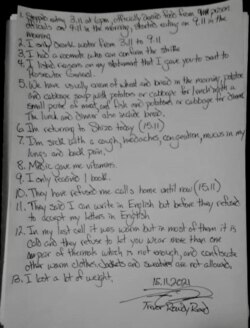 1. Stopped eating 3.11 at 6pm, officially took from prison
officials on 4.11 in the morning, started eating on 9.11 in the
morning
2. I only drank water from 3.11 to 9.11
3. I had a cellmate who can confirm the strike
4. I listed reasons on my statement that I gave you to sent to
Honorary Consul.
5. We have usually cream of wheat and bread in the morning, potato
and cabbage soup with potatoes or cabbage for lunch with a
small piece of meat, and fish and potatoes or cabbage for dinner
The lunch and dinner also include bread.
6. I'm returning to Shizo today (15.11)
7. I'm sick with a cough, headaches, congestion, mucus in my
lungs and back pain.
8. Medic gave me vitamins.
9. I only received 1 book.
10. They have refused me calls home until now (15.11)
11. They said I can write in English but before they refused
to accept my letters in English
12. In my last cell it was warm but in most of them it is
cold and they refuse to let you wear more than one
pair of thermals which is not enough, and confiscate
other warm clothes, jackets and sweaters are not allowed.
13. I lost a lot of weight.
15.11.2021
Trevor Rowdy Reed